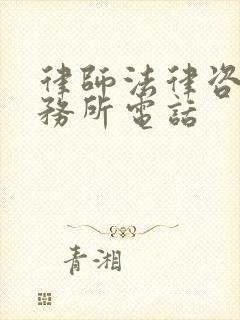 律師法律咨
務所電話
青湘